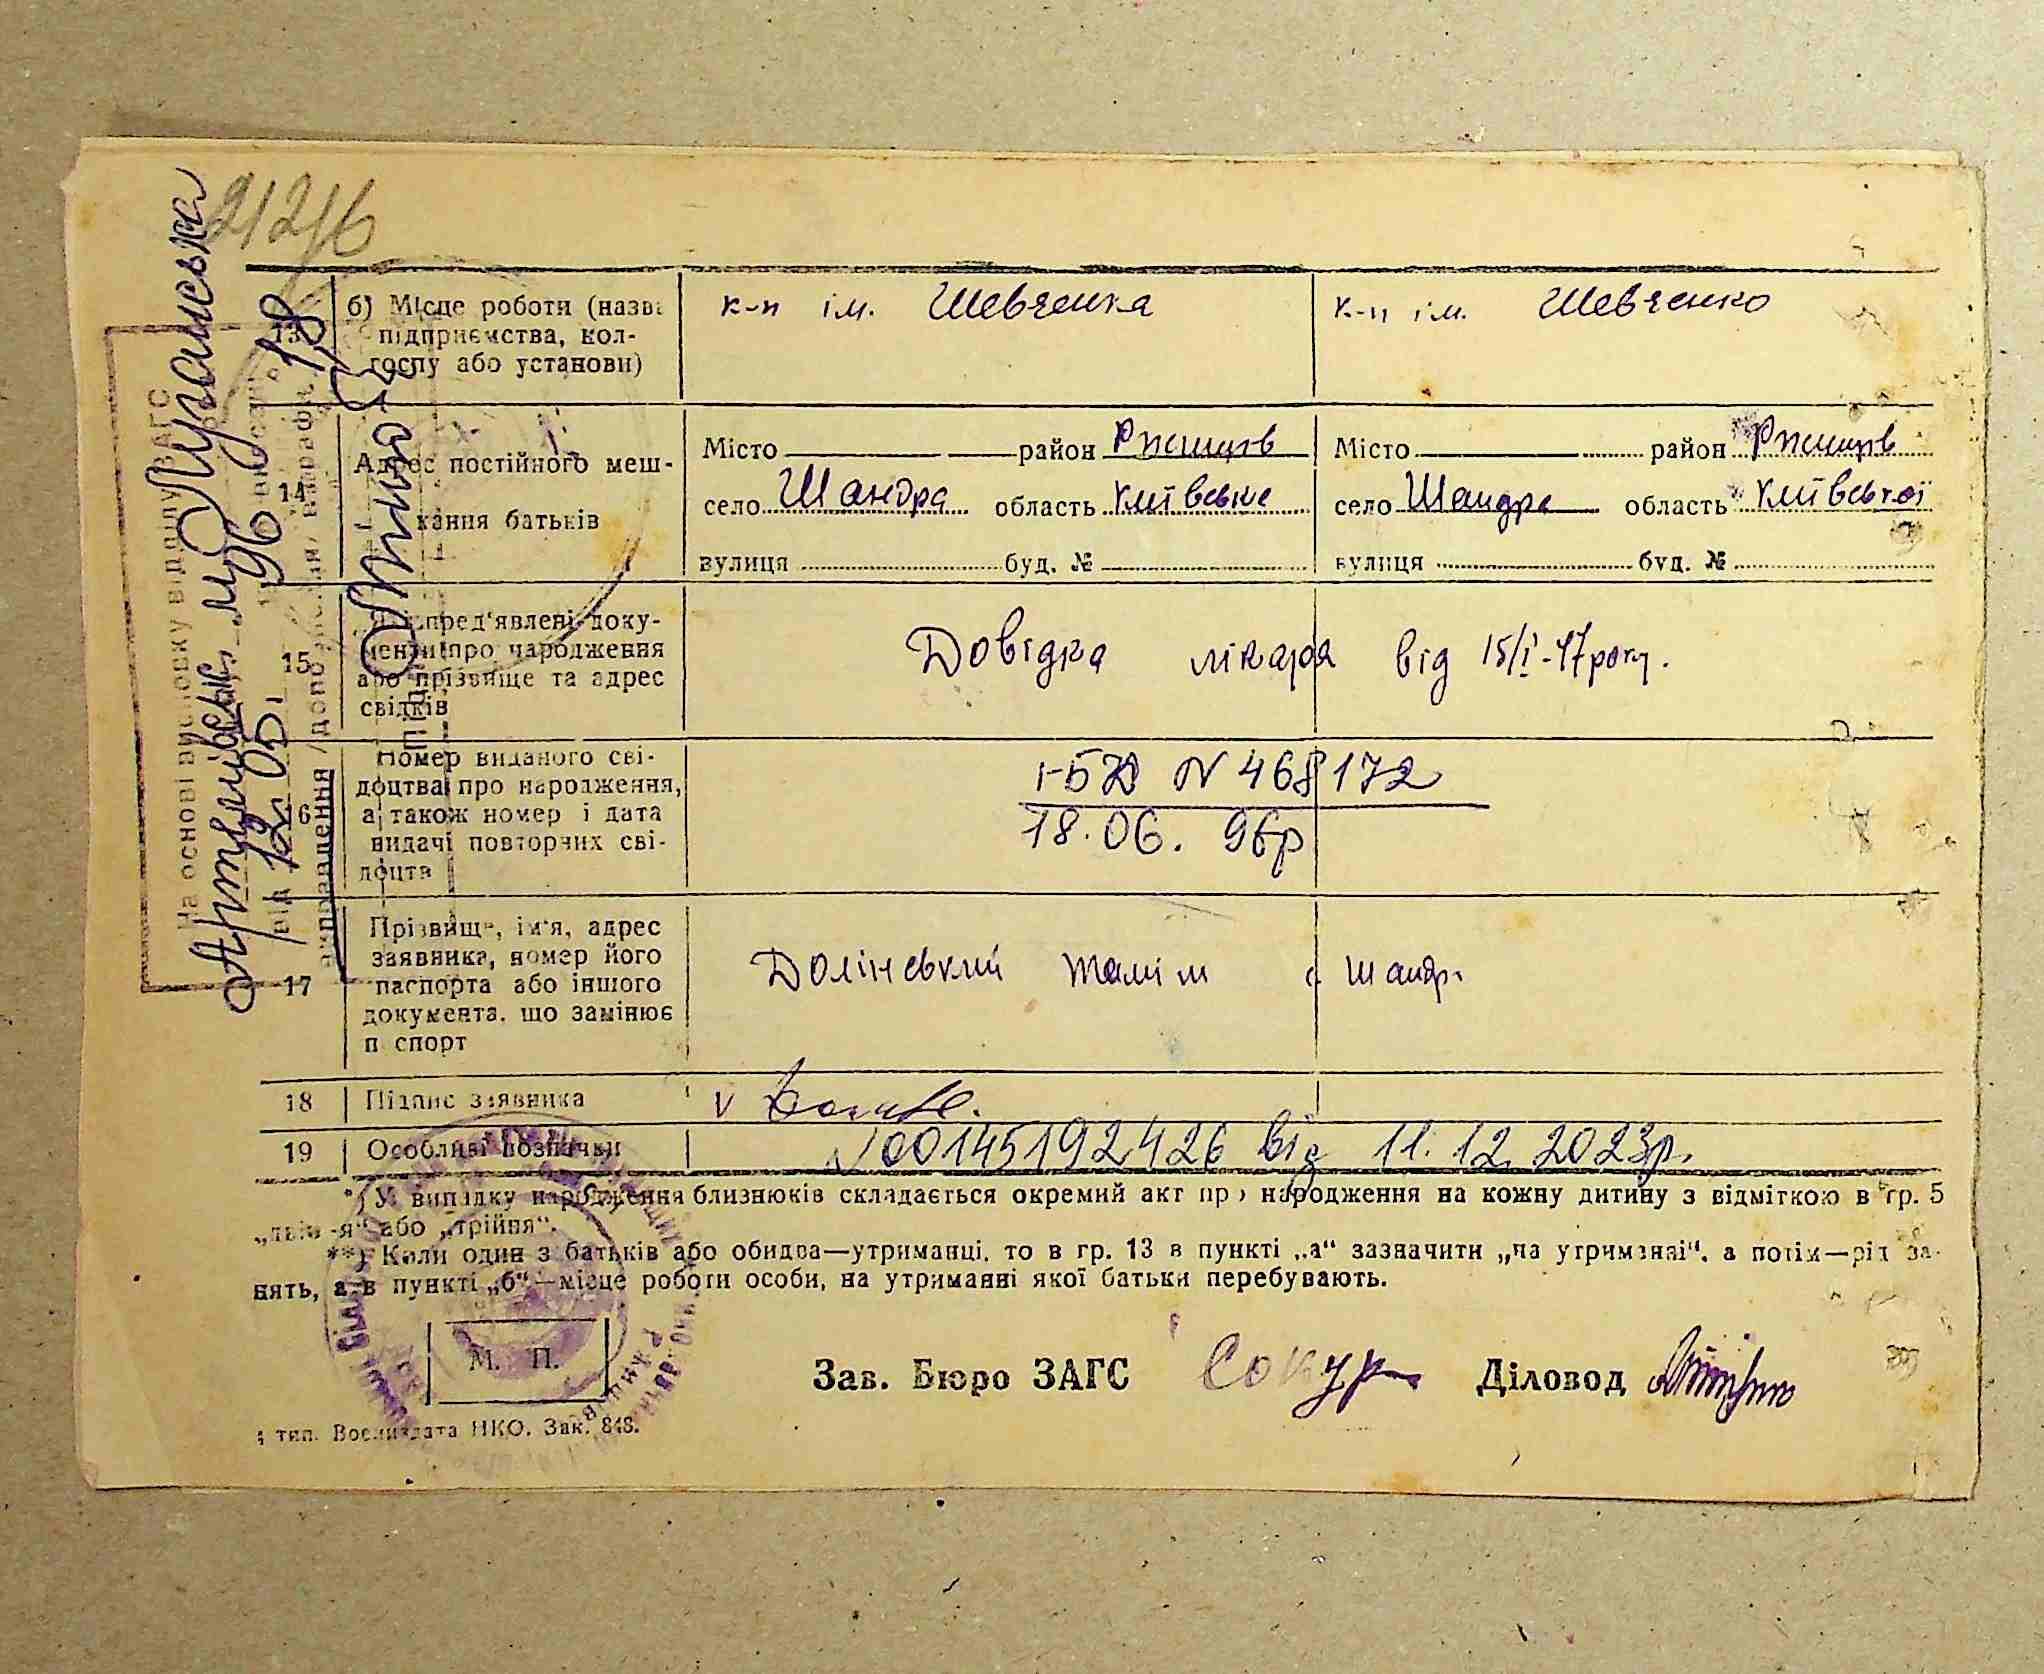 21216
13
б) Місце роботи (назва
підприємства, кол-
госпу або установи)
к-п ім. Шевченка
к-п ім. Шевченко
14
Адрес постійного меш-
кання батьків
Місто район Ржищів
село Шандра область Київське
вулиця буд. №
Місто район Ржищів
село Шандра область Київської
вулиця буд. №
15
пред'явлені доку-
менти про народження
або прізвище та адрес
свідків
Довідка лікаря від 15/I-47 року.
6
Номер виданого сві-
доцтва про народження,
а також номер і дата
видачі повторних сві-
доцтв
І-БК N 468172
18.06. 96р
17
Прізвище, ім'я, адрес
заявника, номер його
паспорта або іншого
документа, що замінює
п спорт
Долінський с Шандр.
18 Підпис заявника
v
19 Особливі позначки
N00145192426 від 11.12.2023р.
*) У випадку народження близнюків складається окремий акт про народження на кожну дитину з відміткою в гр. 5
„двій-я" або „трійня".
**) Коли один з батьків або обидва—утриманці, то в гр. 13 в пункті „а" зазначити „на утриманні", а потім—рід за-
нять, а в пункті „б"—місце роботи особи, на утриманні якої батьки перебувають.
М. П.
Зав. Бюро ЗАГС Сокур Діловод
тип. Воениздата НКО. Зак. 848.
На основі висновку відділу ЗАГС
Артемівськ. м. Луганська
від 12.05. 1996 № 18
виправлення /доповнення/ в параграфи
Підпис